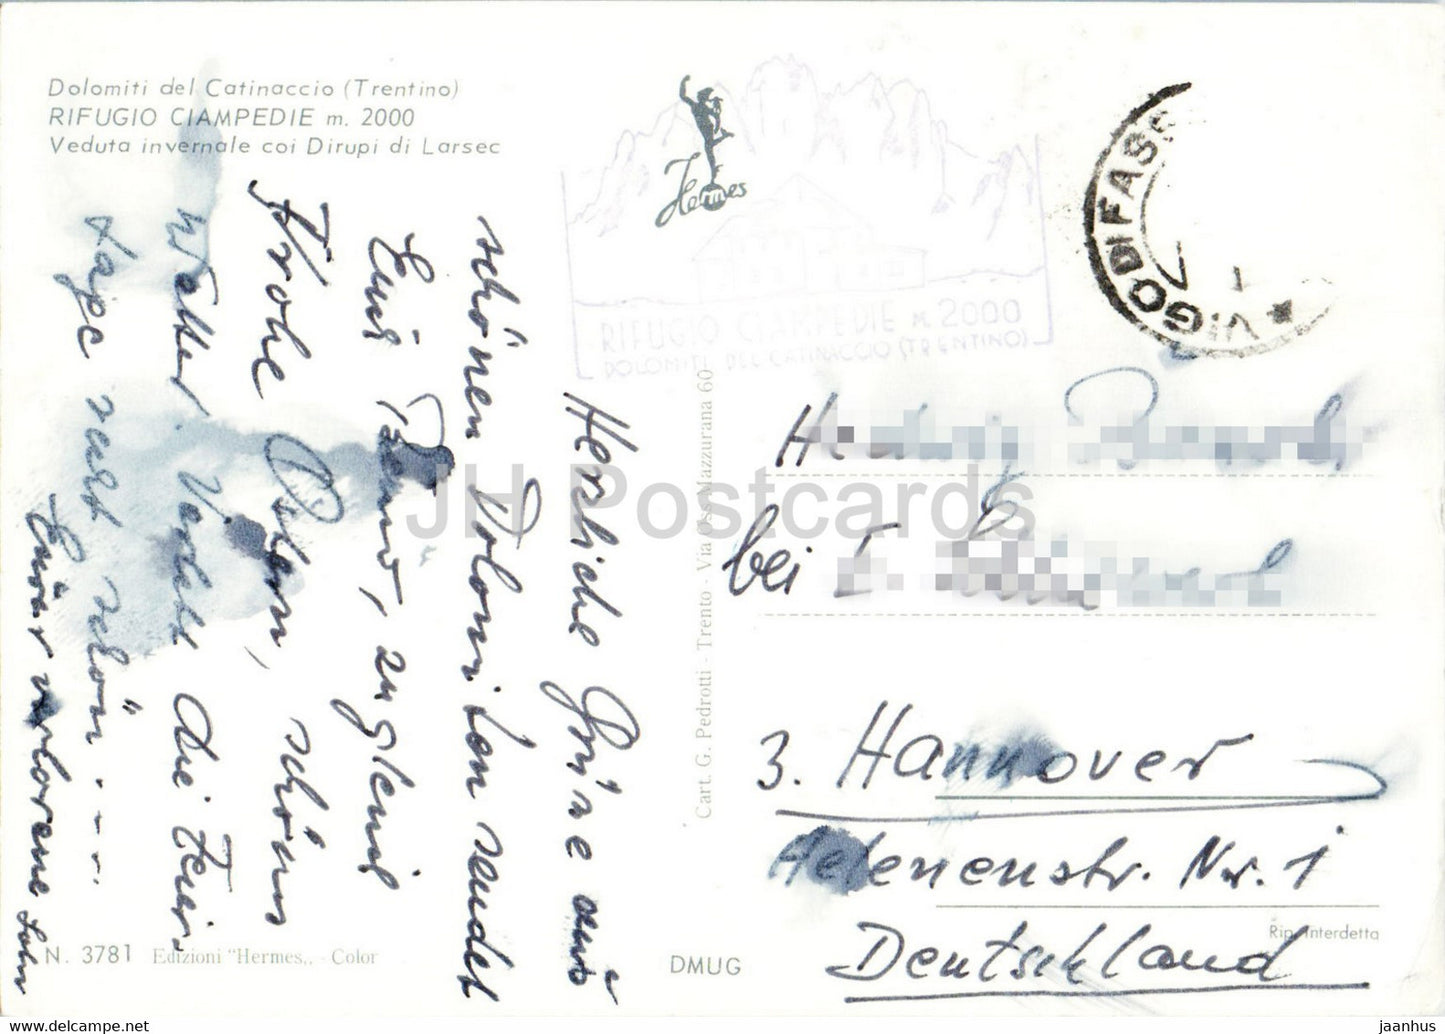 Dolomiti del Catinaccio (Trentino)
RIFUGIO CIAMPEDIE m. 2000
Veduta invernale coi Dirupi di Larsec
Hermes
RIFUGIO CIAMPEDIE M. 2000
DOLOMITI DEL CATINACCIO (TRENTINO)
VIGO DI FASS
Herzliche Grüße aus
schönen Dolomiten sendet
Euch
zugleich
Frohe Ostern, schöns
Wetter. Vorletz die Feier
Lage sehr schön ----
Euer verlorene Sohn
Cart. G. Pedrotti - Trento - Via Oss Mazzurana 60
bei
3. Hannover
Helenenstr. Nr. 1
Deutschland
Rip. Interdetta
N. 3781 Edizioni "Hermes,, - Color
DMUG
JH Postcards
www.delcampe.net
jaanhus